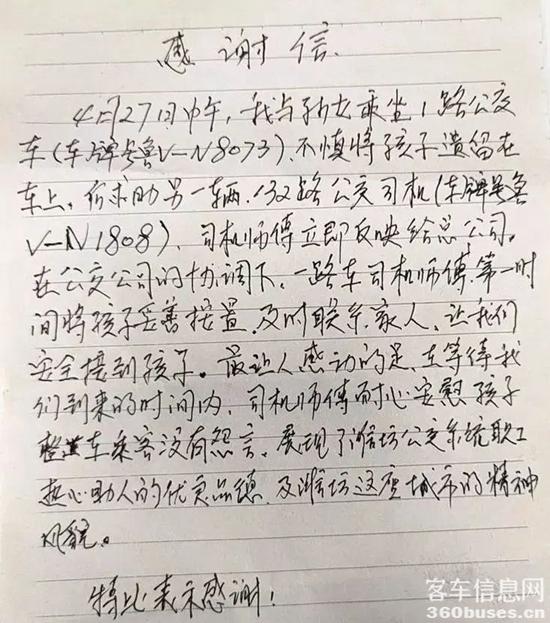 感谢信
4月27日中午，我与孙女乘坐1路公交
车(车牌号鲁V-N8073)、不慎将孩子遗留在
车上。我求助另一辆、132路公交司机(车牌号鲁
V-N1808)，司机师傅立即反映给总公司。
在公交公司的协调下、一路车司机师傅、第一时
间将孩子妥善接置、及时联系家人、让我们
安全接到孩子。最让人感动的是、在等待我
们到来的时间内、司机师傅耐心安慰孩子
整车乘客没有怨言。展现了潍坊公交系统职工
热心助人的优良品德、及潍坊这座城市的精神
风貌。
特此表示感谢！
客车信息网
360buses.cn